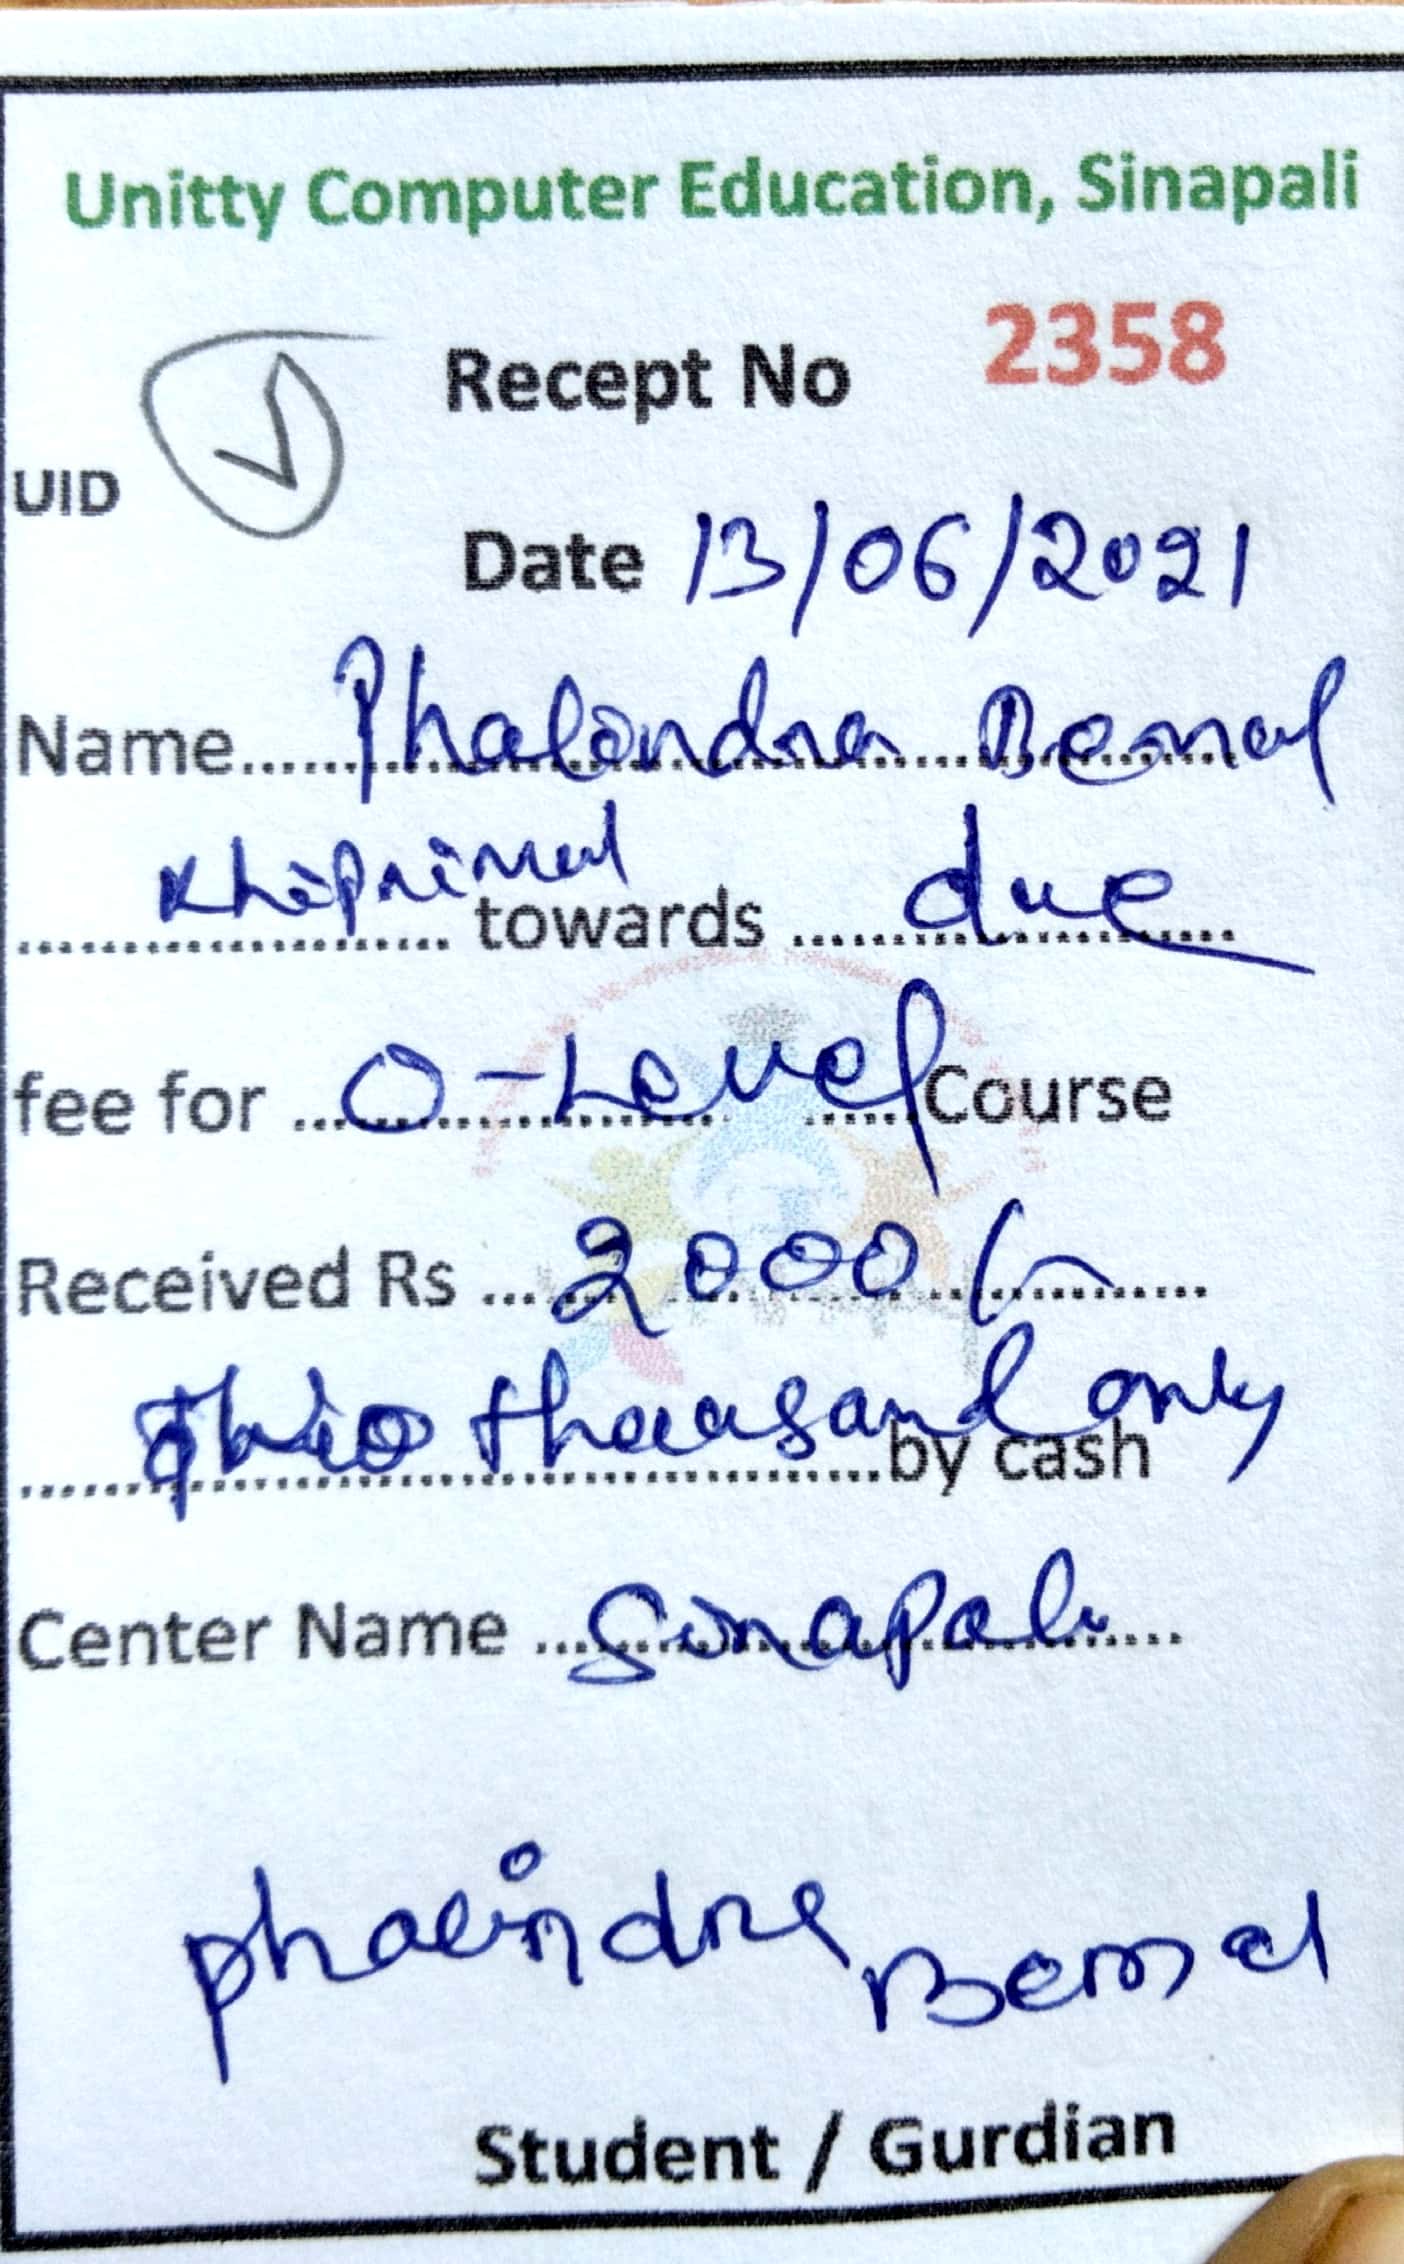 Unitty Computer Education, Sinapali
Recept No 2358
UID
Date 13/06/2021
Name Phalendra Bemal
towards due
fee for O-Level Course
Received Rs 2000/-
thousand only by cash
Center Name Sinapali
phalindra Bemal
Student / Gurdian